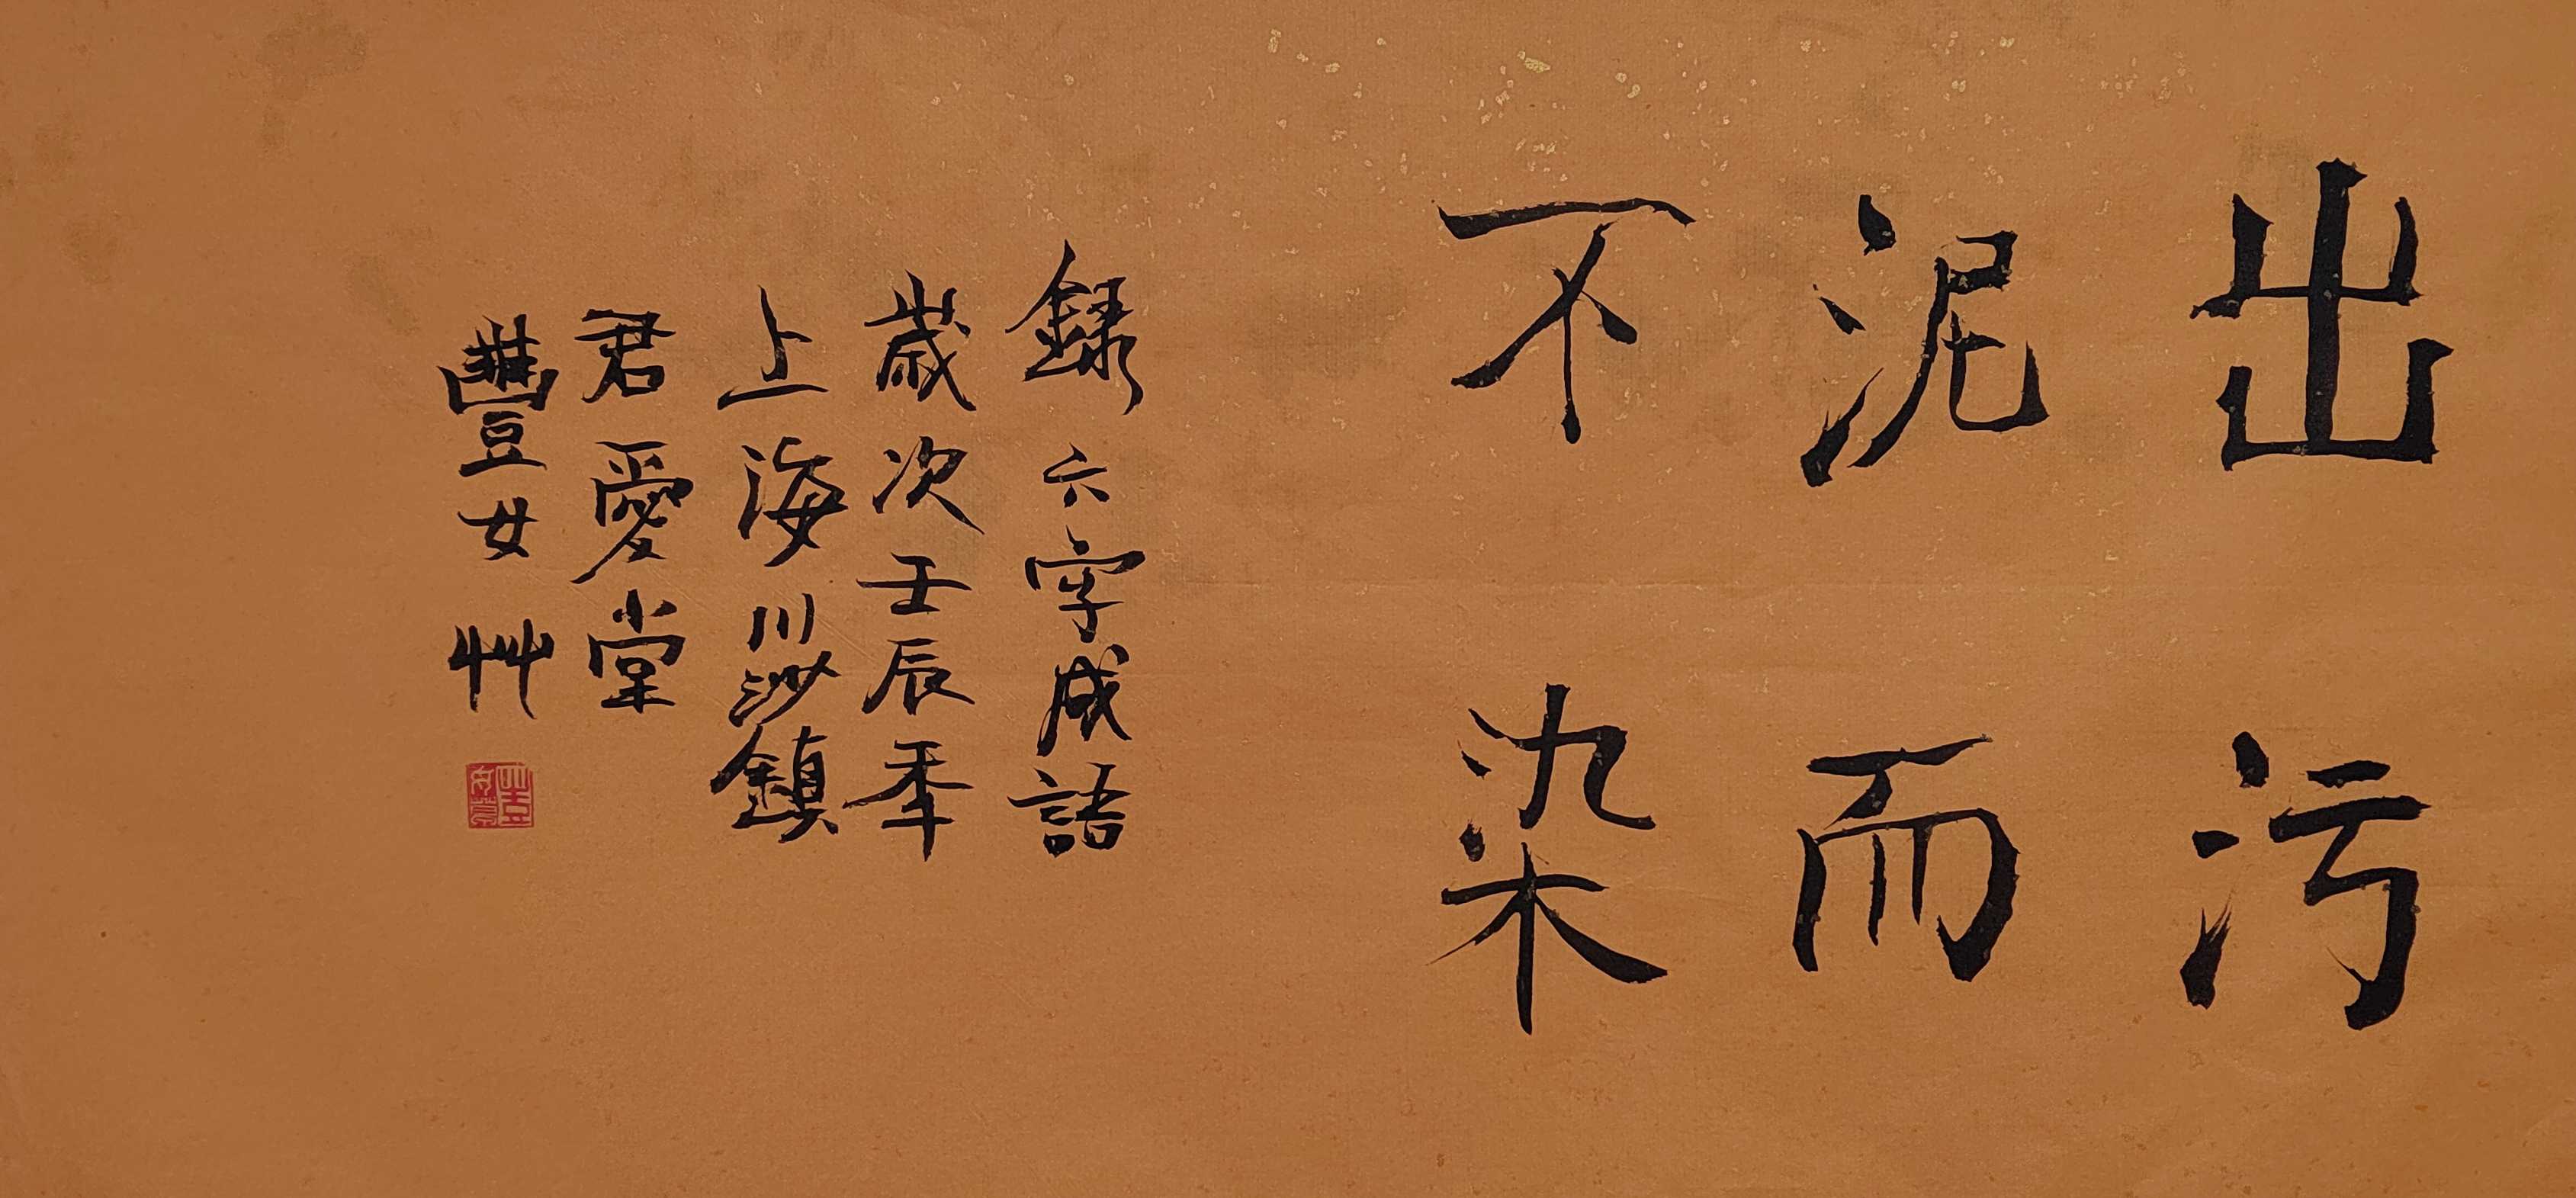 出污
泥而
不染
録六字成語
歲次壬辰季
上海川沙鎮
君愛堂
豐女艸